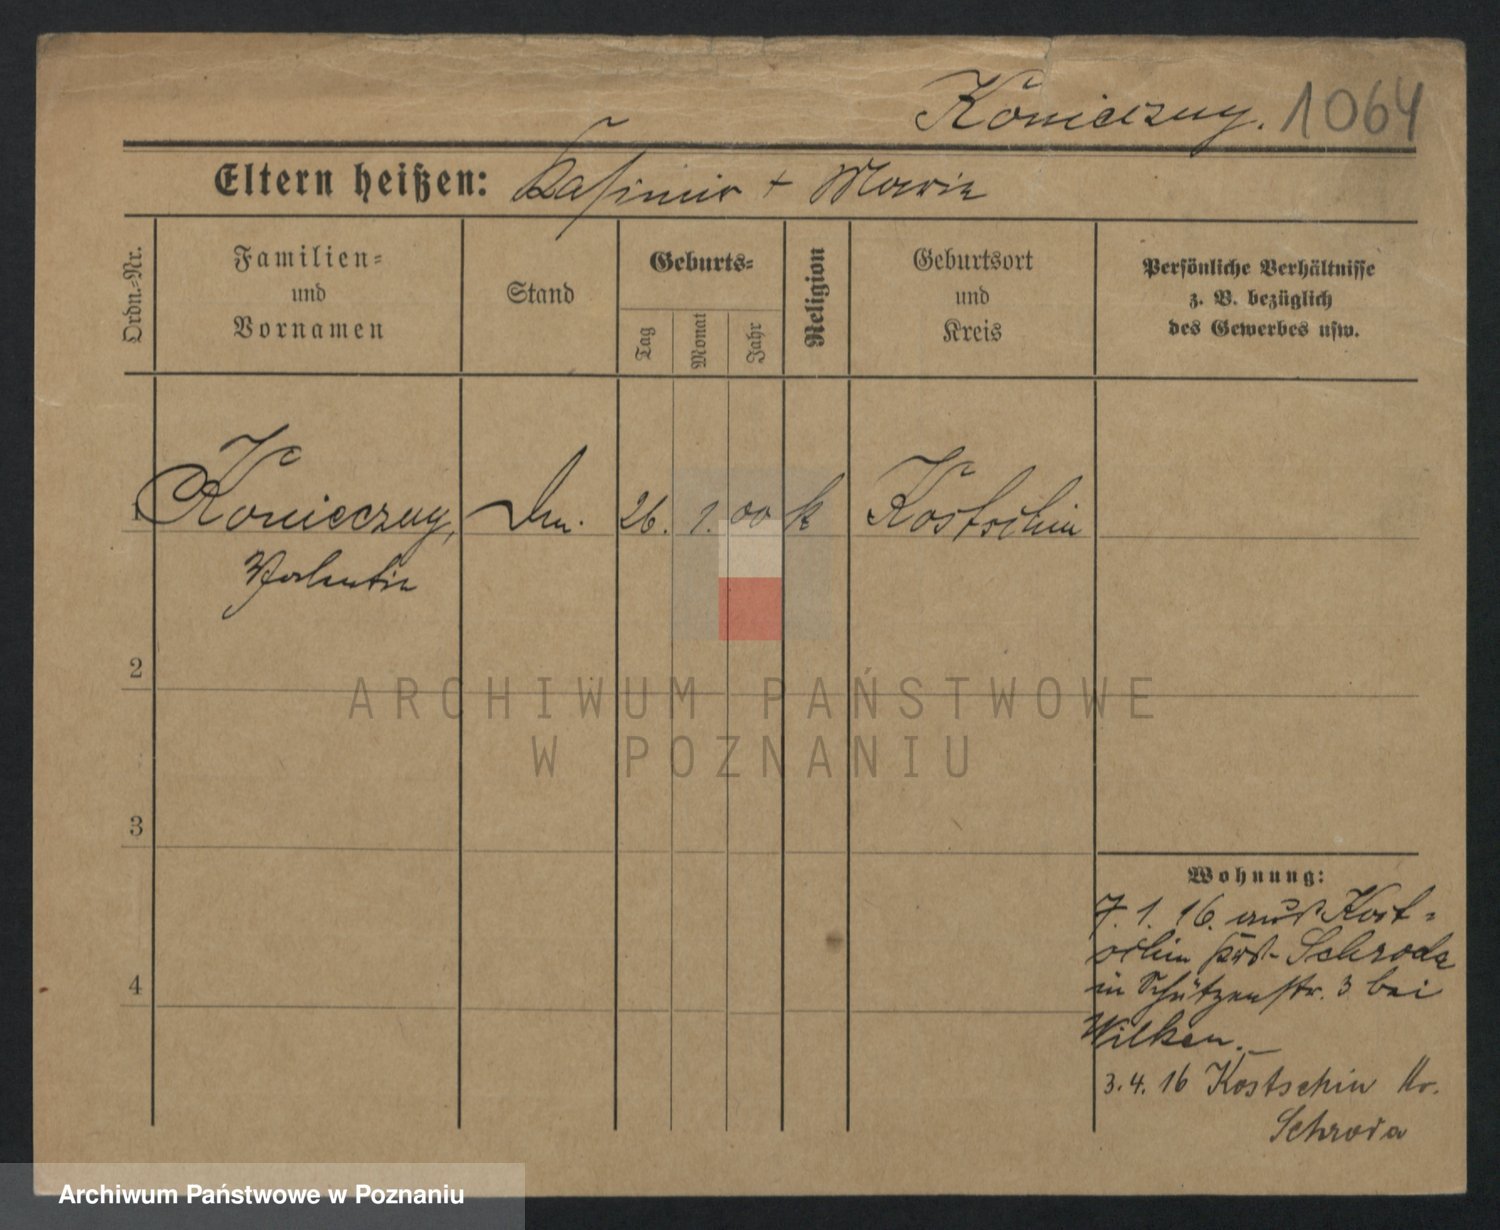 Konieczny. 1064
Eltern heißen: Kasimir + Maria
Ordn.=Nr.
Familien=
und
Vornamen
Stand
Geburts=
Tag
Monat
Jahr
Religion
Geburtsort
und
Kreis
Persönliche Verhältnisse
z. B. bezüglich
des Gewerbes usw.
1 Konieczny, 26. 1. 00 k Kostschin
Valentin
2
3
4
Wohnung:
7. 1. 16. aus Kost-
schin Schroda
in Schützenstr. 3 bei
Wilken.
3. 4. 16 Kostschin Kr.
Schroda
ARCHIWUM PAŃSTWOWE
W POZNANIU
Archiwum Państwowe w Poznaniu